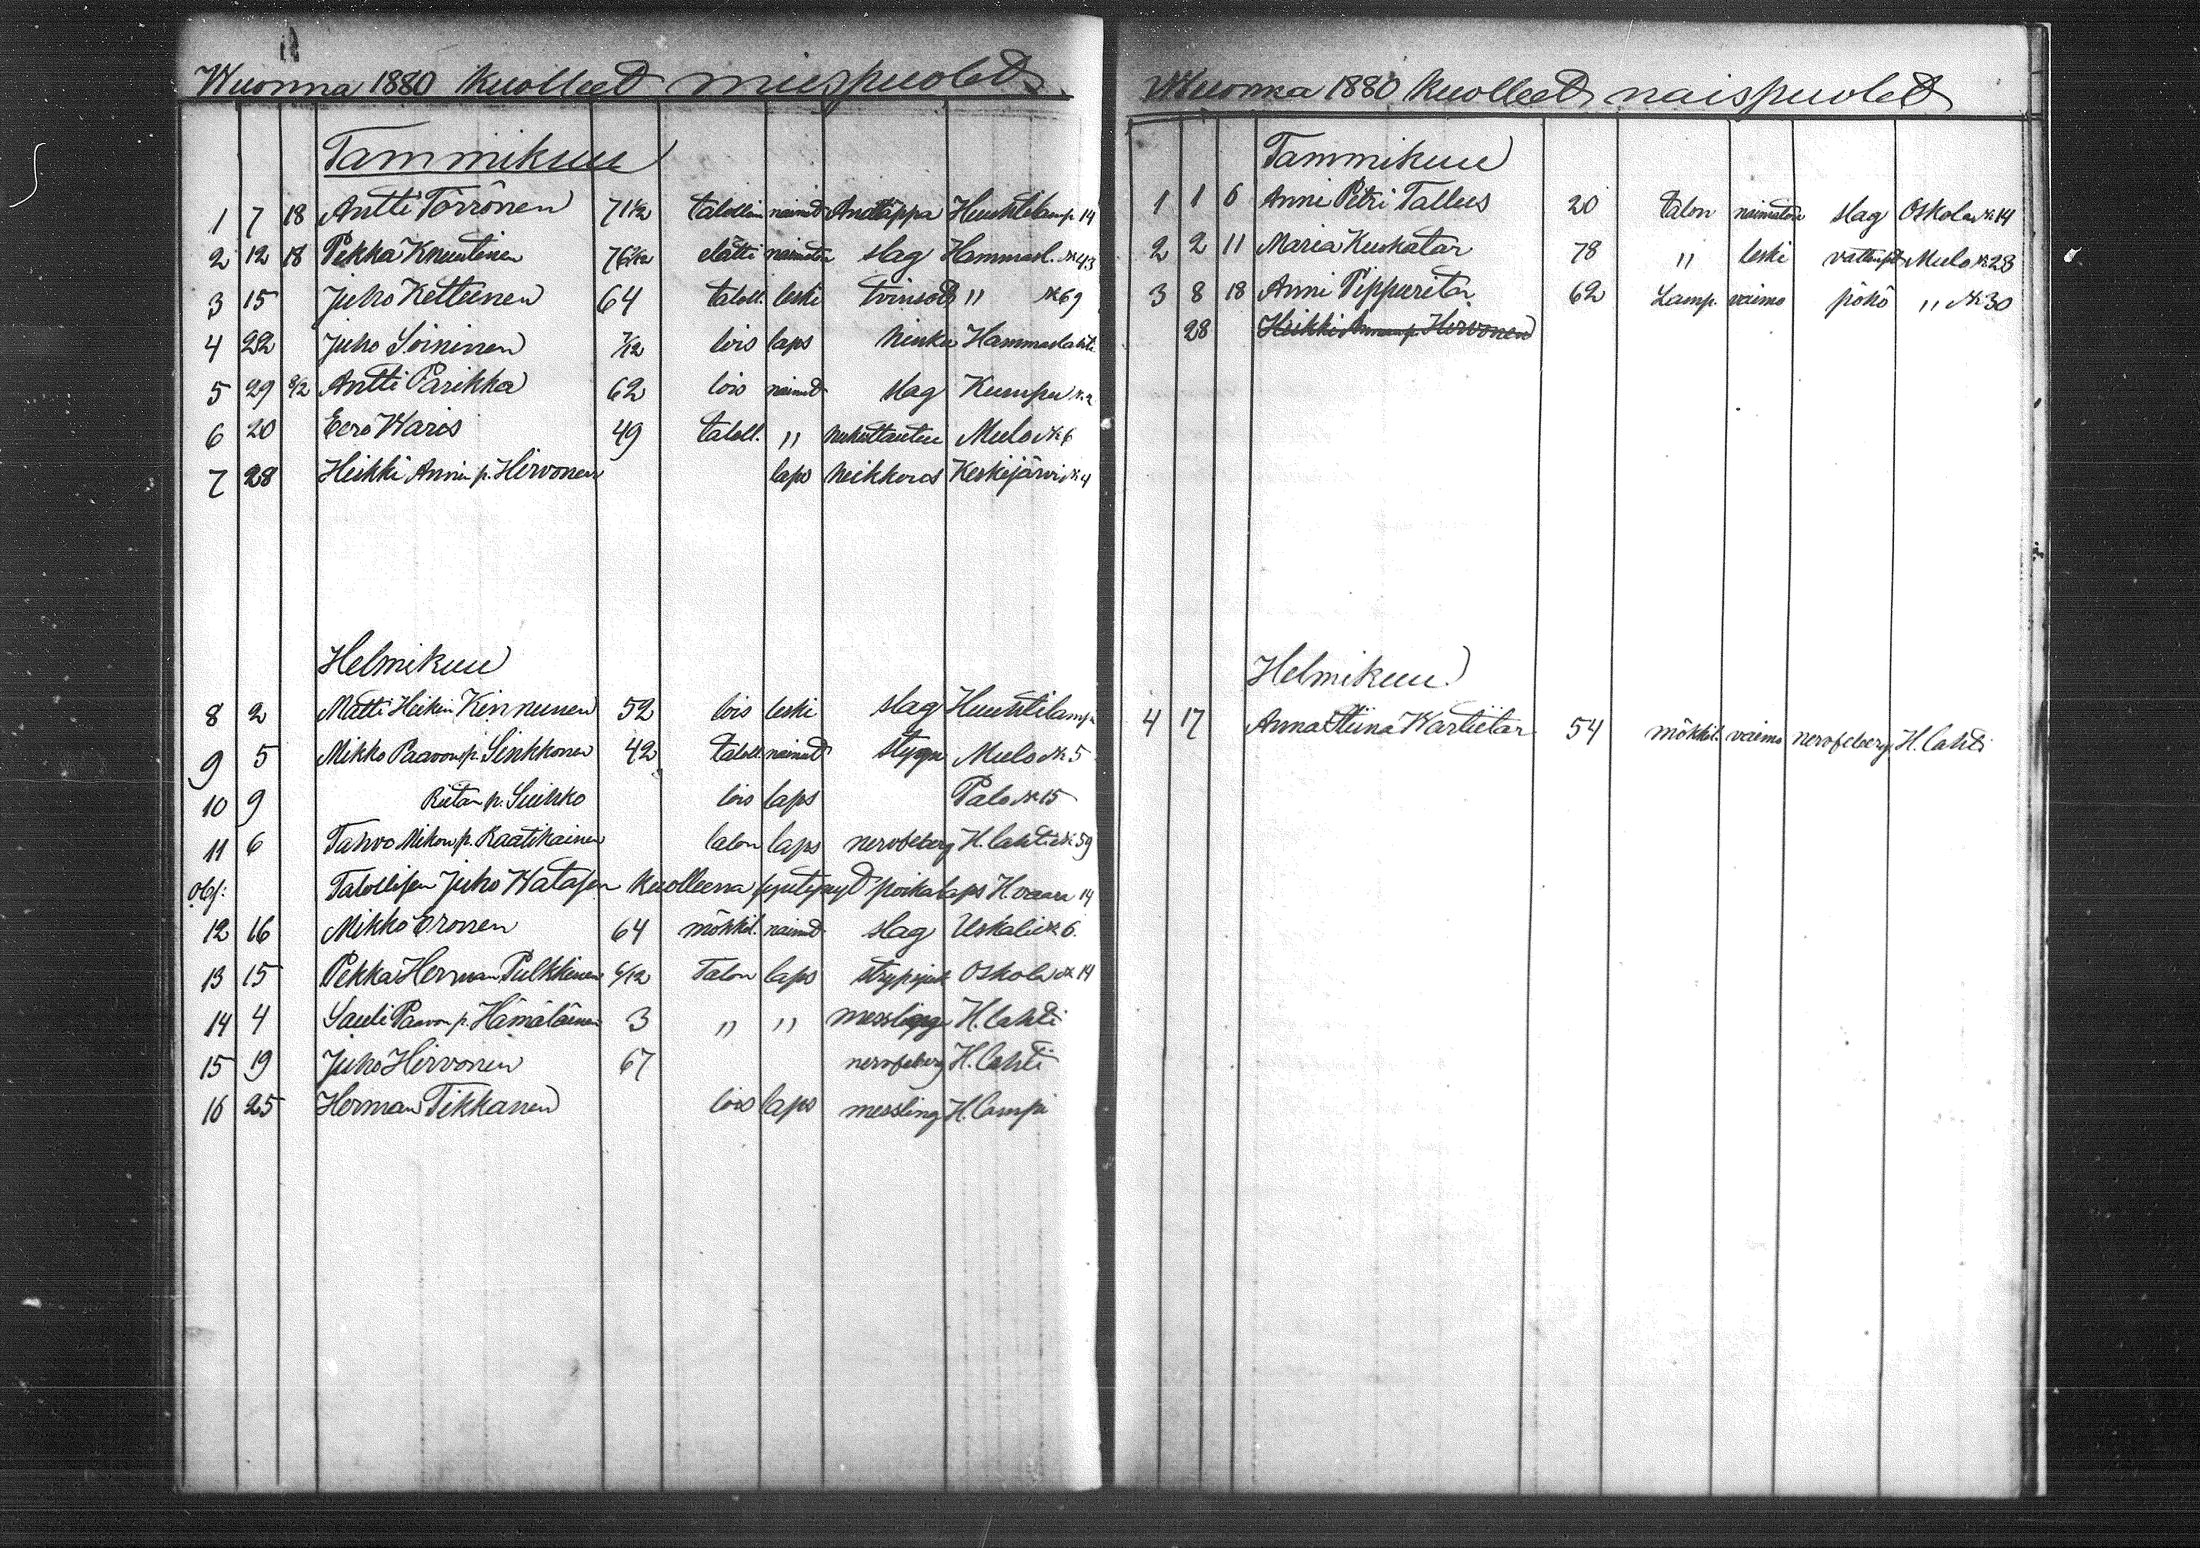 Wuonna 1880 kuolleet miespuolet
Tammikuu
1 7 18 Antti Törrönen 71 1/2 talollin nainut Andtäppa Huuhtilamp. 14
2 12 18 Pekka Knuutinen elätti naimatoin slag Hammasl. № 43
3 15 Juho Kettunen 64 taloll. leski tvinsot " № 69
4 22 Juho Soininen 7/12 lois laps hinku Hammaslahti
5 29 8/2 Antti Parikka 62 lois nainut slag Kumpu № 2
6 20 Eero Waris 49 taloll. " Mulo № 6
7 28 Heikki Annin p. Hirvonen laps heikkous Keskijärvi № 4
Helmikuu
8 2 Matti Heikin Kinnunen 52 lois leski slag Huuhtilampi
9 5 Mikko Paavon p. Sinkkonen 42 taloll. nainut styng Mulo № 5
10 9 Riitan p. Suikko lois laps Palo № 15
11 6 Tahvo Mikon p. Kaatikainen talon laps nervfeberg H. lahti № 59
obs: Talollisen Juho Watasen kuolleena syntynyt poikalaps H. vaara 14
12 16 Mikko Eronen 64 mökkil. nainut slag Uskali № 6.
13 15 Pekka Herman Pulkkinen 6/12 Talon laps strypsjuk Oskola № 14
14 4 Sauli Paavon p. Hämäläinen 3 " " messling H. lahti
15 19 Juho Hirvonen 67 nervfeberg H. lahti
16 25 Herman Tikkanen lois laps messling H. lampi
Wuonna 1880 kuolleet naispuolet
Tammikuu
1 1 6 Anni Petri Tallus 20 talon naimatoin slag Oskola № 14
2 2 11 Maria Kuskatar 78 " leski Mulo № 28
3 8 18 Anni Pippuritar 62 Lamp. vaimo pöhö " № 30
28 Heikki Annin p. Hirvonen
Helmikuu
4 17 Anna Stiina Kartietar 54 mökkil. vaimo nervfeberg H. lahti